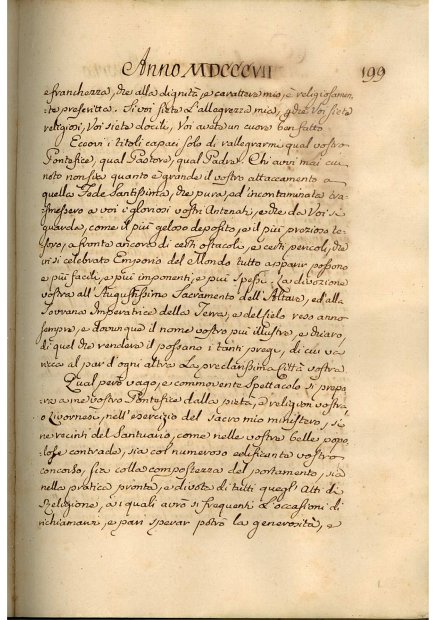 Anno MDCCCVII 199
e franchezza, che alla dignità, e carattere mio, è religiosamen-
te prescritta. Sì voi siete l'allegrezza mia, che Voi siete
religiosi, Voi siete docili, Voi avete un cuore ben fatto.
Eccovi i titoli capaci solo di rallegrarmi qual vostro
Pontefice, qual Pastore, qual Padre. Chi avvi mai cui
noto non sia quanto è grande il vostro attaccamento a
quella Fede Santissima, che pura, ed incontaminata tra-
smessero a voi i gloriosi vostri Antenati, e che da Voi si
guarda, come il più geloso deposito, e il più prezioso te-
soro, a fronte ancora di certi ostacoli, e certi pericoli, che
in sì celebrato Emporio del Mondo tutto apparir possono
e più facili, e più imponenti, e più spessi. La divozione
vostra all'Augustissimo Sacramento dell'Altare, ed alla
Sovrana Imperatrice della Terra, e del Cielo reso anno
sempre, e dovunque il nome vostro più illustre, e chiaro,
di quel che rendere il possano i tanti pregi, di cui va
ricca al par d'ogni altra la preclarissima Città vostra.
Qual però vago, e commovente Spettacolo si prepa-
ra a me vostro Pontefice dalla pietà, e religion vostra,
o Livornesi, nell'esercizio del sacro mio ministero, sì
ne recinti del Santuario, come nelle vostre belle popo-
lose contrade, sia col numeroso edificante vostro
concorso, sia colla compostezza del portamento, sia
nella pratica pronta, e divota di tutti quegli Atti di
Religione, a i quali avrò sì frequenti l'occasioni di
richiamarvi, e pari sperar potrò la generosità, e